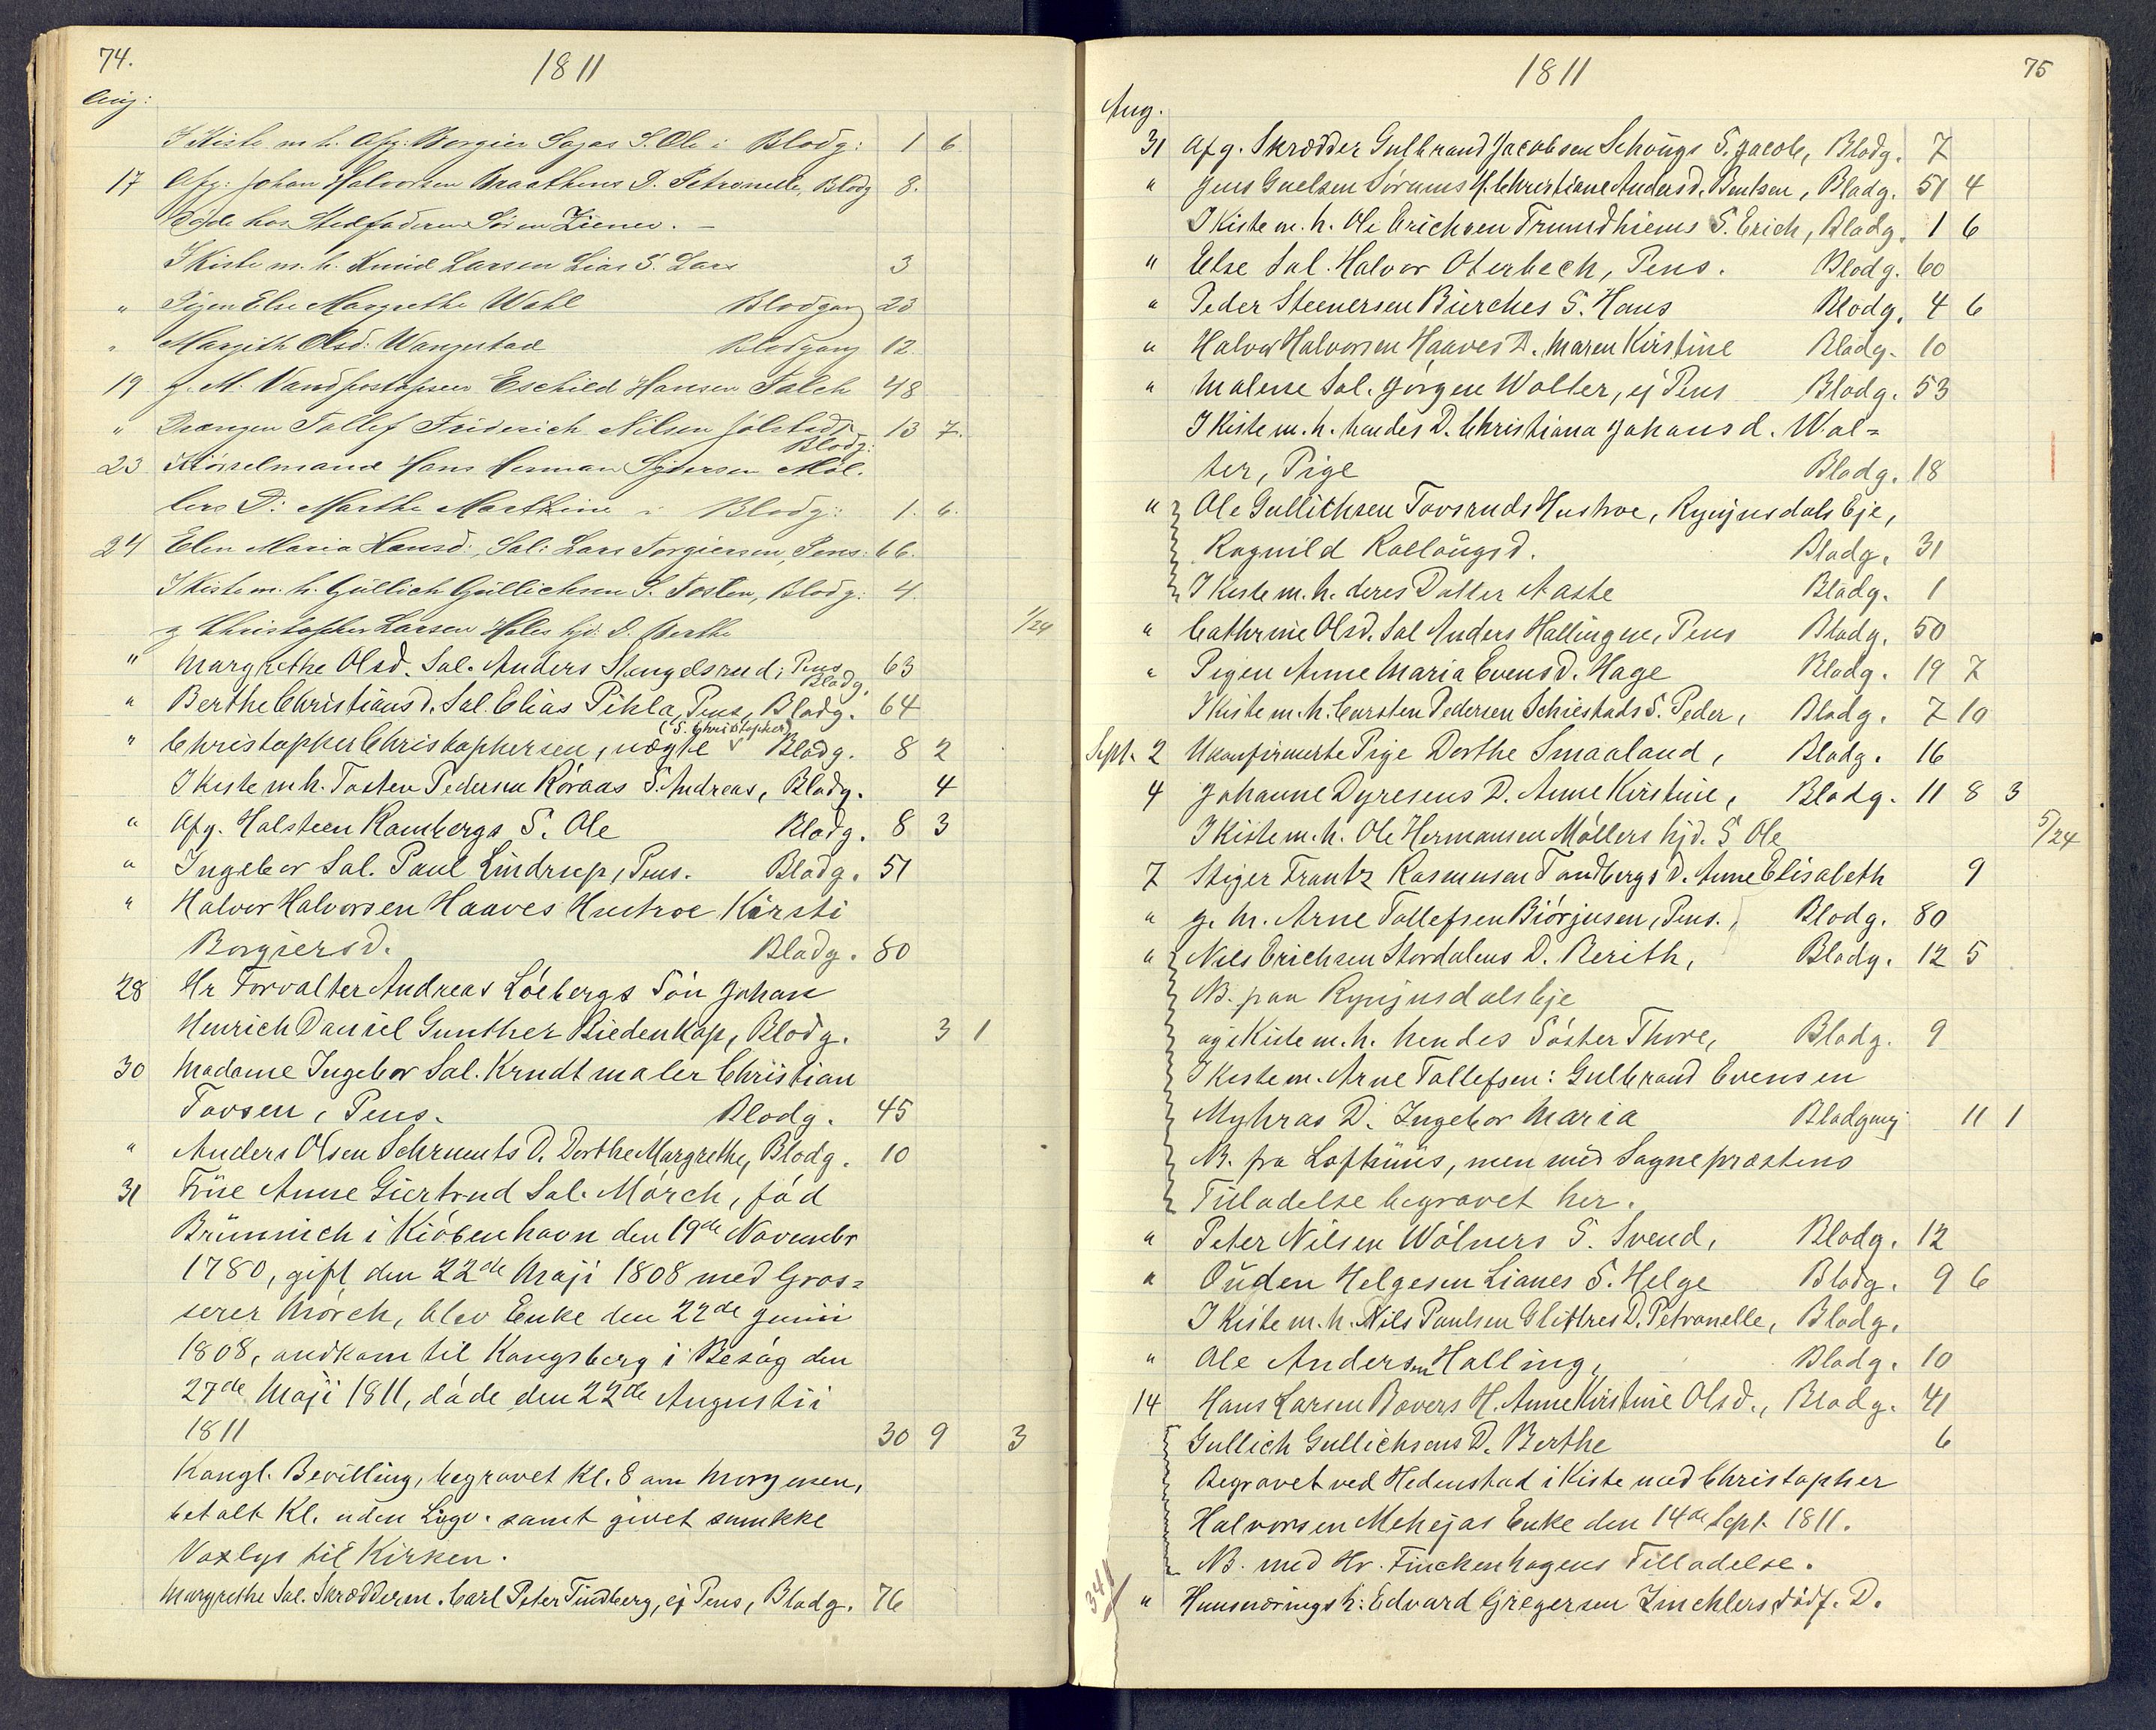 74.
1811
Aug:
I Kiste m. h. Afg: Borgier Sagas S. Ole i Blodg: 1 6
17 Afg: Johan Halvorsen Braathens D. Petronelle, Blodg 8.
Døde hos Stedfaderen Søren Ziener. –
I Kiste m. h. Knud Larsen Lias S. Lars 3
" Pigen Else Margrethe Wahl Blodgang 23
" Margith Olsd: Wangestad Blodgang 12.
19 g. M. Eschild Hansen Falch 48
" Drengen Tollef Friderich Nilsen Jølstad, Blodg: 13 7.
23 Kiørselmand Hans Herman Syversen Møl-
lers D: Marthe Marthine i Blodg: 1. 6.
24 Elen Maria Hansd:, Sal: Lars Torgiersen, Pens: 66.
I Kiste m. h. Gullich Gullichsen S. Tosten, Blodg: 4.
g Christopher Larsen Holes hjd: D. Berthe 1/24
" Margrethe Olsd. Sal. Anders Stengelsrud, Pens Blodg. 63
" Berthe Christiansd. Sal. Elias Pihla, Pens, Blodg. 64
" Christopher Christophersen, uægte (S. Christopher) Blodg. 8 2
I Kiste m h. Tosten Pedersen Røraas S. Andreas, Blodg. 4
" Afg. Halsteen Rambergs S. Ole Blodg. 8 3
" Ingebor Sal. Paul Lindrup, Pens. Blodg. 51
" Halvor Halvorsen Haaves Hustroe Kirsti
Borgiersd. Blodg. 80
28 Hr Forvalter Andreas Løebergs Søn Johan
Henrich Daniel Gunther Biedenkap, Blodg. 3 1
30 Madame Ingebor Sal. Krudtmaler Christian
Tovsen, Pens. Blodg. 45
" Anders Olsen Schrumts D. Dorthe Margrethe, Blodg. 10
31 Frue Anne Giertrud Sal. Mørch, fød
Brünnich i Kiøbenhavn den 19de Novembr
1780, gift den 22de Maji 1808 med Gros=
serer Mørch, blev Enke den 22de Junii
1808, andkom til Kongsberg i Besøg den
27de Maji 1811, døde den 22de Augustii
1811 30 9 3
Kongl. Bevilling, begravet Kl. 8 om Morgenen,
betalt Kl. uden Ligv. samt givet smukke
Voxlys til Kirken.
Margrethe Sal. Skrædderm. Carl Peter Tindberg, ej Pens, Blodg. 76
1811
75
Aug.
31 Afg. Skrædder Gulbrand Jacobsen Schougs S. Jacob, Blodg. 7
" Jens Gaelsen Sørums H. Christiane Andersd. Bentsen, Blodg. 51 4
I Kiste m. h. Ole Erichsen Trundhiems S. Erich, Blodg. 1 6
" Else Sal. Halvor Oterbech, Pens. Blodg. 60
" Peder Steenersen Bierches S. Hans Blodg. 4 6
" Halvor Halvorsen Haaves D. Maren Kirstine Blodg. 10
" Malene Sal. Jørgen Wolter, ej Pens Blodg. 53
I Kiste m. h. hendes D. Christiana Johansd. Wol=
ter, Pige Blodg. 18
" Ole Gullichsen Tovsruds Hustroe, Rynjusdals Eje,
Ragnild Rolløugsd. Blodg. 31
I Kiste m. h. deres Datter Aaste Blodg. 1
" Cathrine Olsd. Sal Anders Hallingen, Pens Blodg. 50
" Pigen Anne Maria Evensd. Hage Blodg. 19 7
I Kiste m. h. Carsten Pedersen Schiestads S. Peder, Blodg. 7 10
Sept. 2 Ukonfirmerte Pige Dorthe Smaaland, Blodg. 16
4 Johanne Dyresens D. Anne Kirstine, Blodg. 11 8 3
I Kiste m. h. Ole Hermansen Møllers hjd. S Ole 5/24
7 Stiger Frantz Rasmusen Tandbergs D. Anne Elisabeth 9
" g. M. Arne Tollefsen Biørjusen, Pens., Blodg. 80
" Nils Erichsen Stordalens D. Berith, Blodg. 12 5
NB. paa Rynjusdals Eje
og i Kiste m. h. hendes Søster Thore, Blodg. 9
I Kiste m. Arne Tollefsen: Gulbrand Evensen
Myhras D. Ingebor Maria Blodgang 11 1
NB. fra Lofthuus, men med Sognepræstens
Tilladelse begravet her.
" Peter Nilsen Wølners S. Svend, Blodg. 12
" Ouden Helgesen Lianes S. Helge Blodg. 9 6
I Kiste m. h. Nils Paulsen Glittres D. Petronelle, Blodg.
" Ole Andersen Halling, Blodg. 10
14 Hans Larsen Bovers H. Anne Kirstine Olsd., Blodg. 41
Gullich Gullichsens D. Berthe 6
Begravet ved Hedenstad i Kiste med Christopher
Halvorsen Mehejas Enke den 14de Sept. 1811.
NB. med Hr. Finckenhagens Tilladelse.
341
" Huusværingsk: Edvard Gregersen Zinchlers dødf. D.